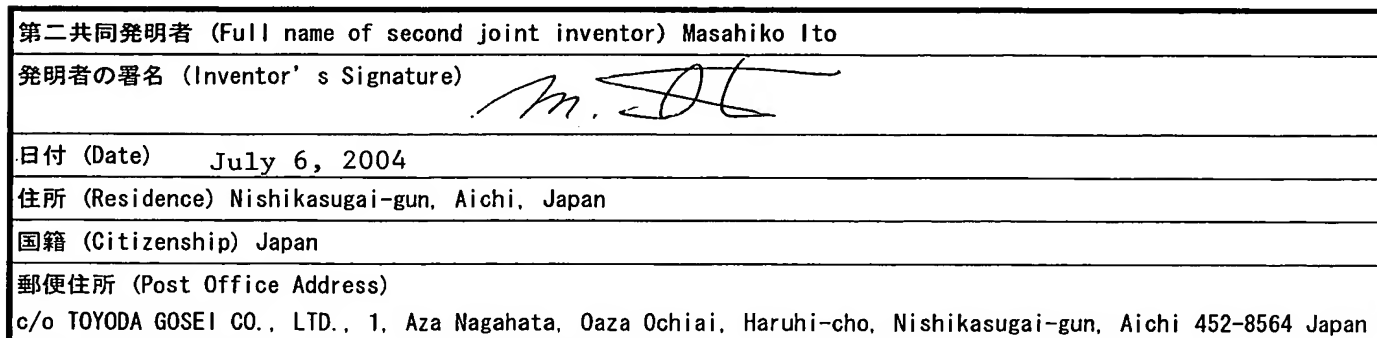 第二共同発明者 (Full name of second joint inventor) Masahiko Ito
発明者の署名 (Inventor's Signature) M. Ito
日付 (Date) July 6, 2004
住所 (Residence) Nishikasugai-gun, Aichi, Japan
国籍 (Citizenship) Japan
郵便住所 (Post Office Address)
c/o TOYODA GOSEI CO., LTD., 1, Aza Nagahata, Oaza Ochiai, Haruhi-cho, Nishikasugai-gun, Aichi 452-8564 Japan